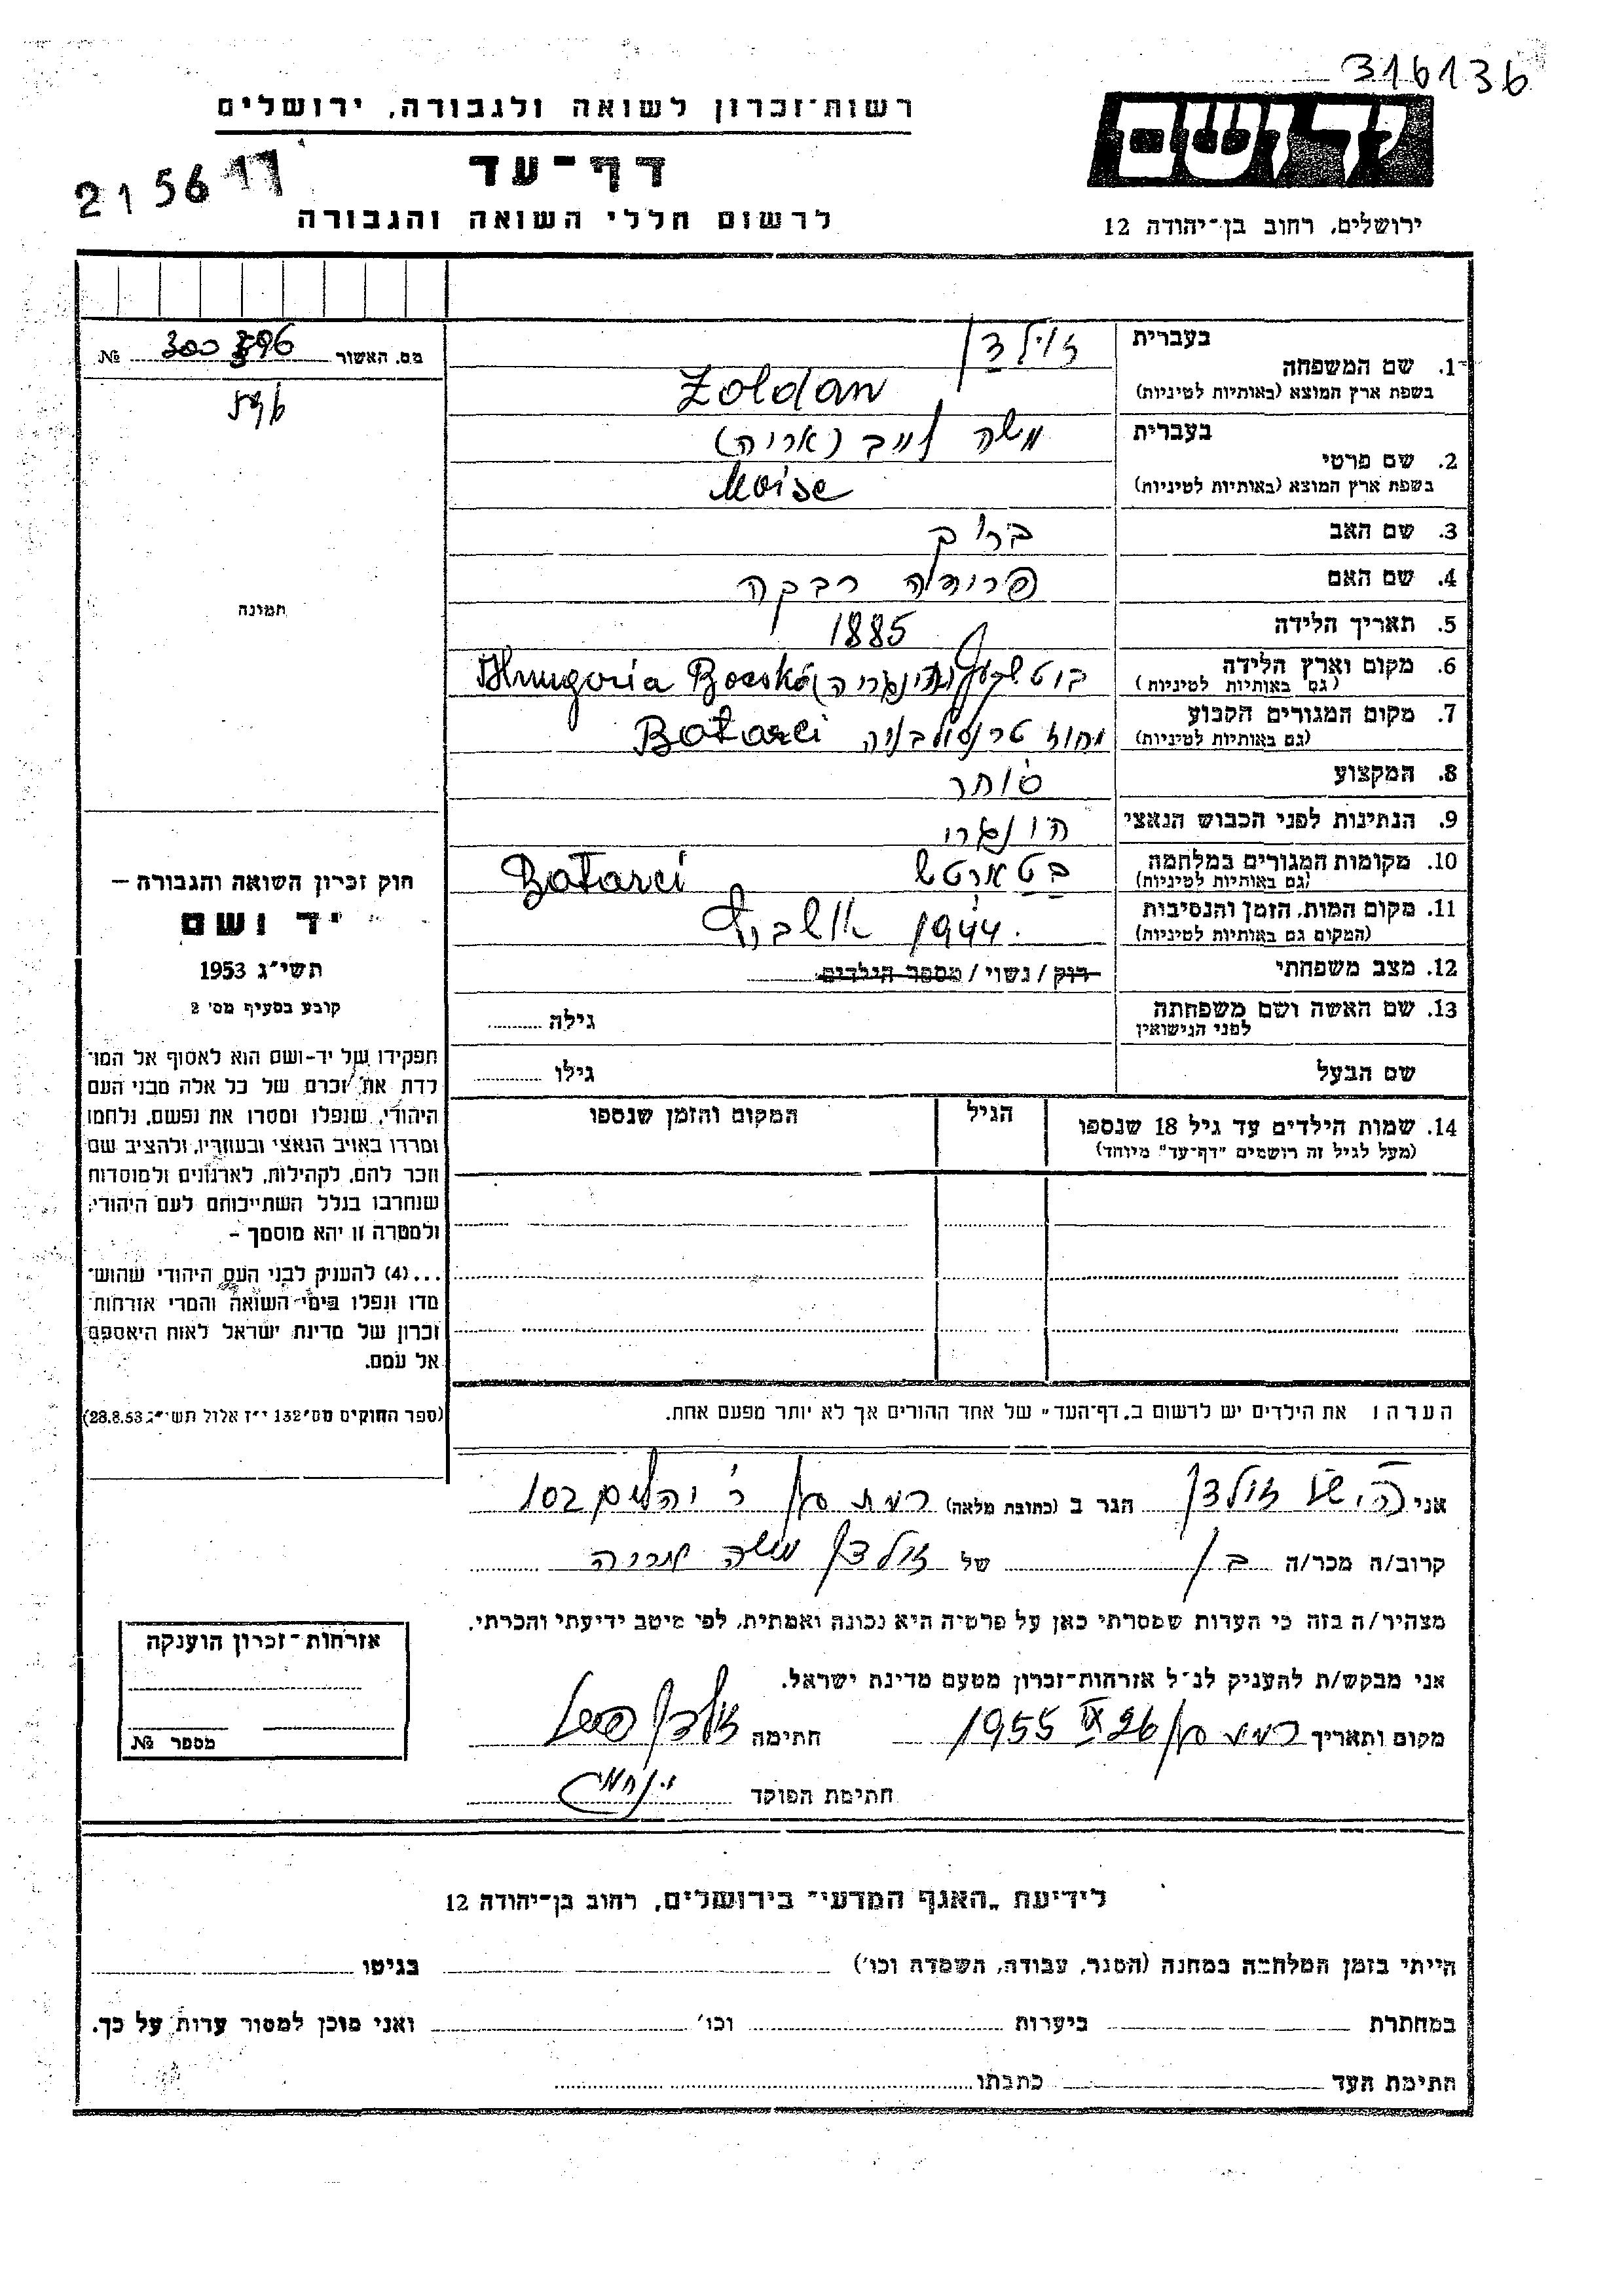 316136
רשות־זכרון לשואה ולגבורה, ירושלים
יד ושם
דף־עד
215611
לרשום חללי השואה והגבורה
ירושלים, רחוב בן־יהודה 12
מס. האשור 300396 №
596
תמונה
1. שם המשפחה בעברית זולדן
בשפת ארץ המוצא (באותיות לטיניות) Zoldan
2. שם פרטי בעברית משה לייב (אריה)
בשפת ארץ המוצא (באותיות לטיניות) Moise
3. שם האב ברוך
4. שם האם פרומה רבקה
5. תאריך הלידה 1885
6. מקום וארץ הלידה (גם באותיות לטיניות) Hungaria Bocskó
7. מקום המגורים הקבוע (גם באותיות לטיניות) מחוז טרנסילבניה Batarci
8. המקצוע סוחר
9. הנתינות לפני הכבוש הנאצי הונגרי
10. מקומות המגורים במלחמה (גם באותיות לטיניות) בטארטש Batarci
11. מקום המות, הזמן והנסיבות (המקום גם באותיות לטיניות) 1944 אושביץ
12. מצב משפחתי רווק / נשוי / מספר הילדים
13. שם האשה ושם משפחתה לפני הנישואין גילה
שם הבעל גילו
14. שמות הילדים עד גיל 18 שנספו הגיל המקום והזמן שנספו
(מעל לגיל זה רושמים "דף־עד" מיוחד)
חוק זכרון השואה והגבורה —
יד ושם
תשי"ג 1953
קובע בסעיף מס' 2
תפקידו של יד-ושם הוא לאסוף אל המו־
לדת את זכרם של כל אלה מבני העם
היהודי, שנפלו ומסרו את נפשם, נלחמו
ומרדו באויב הנאצי ובעוזריו, ולהציב שם
וזכר להם, לקהילות, לארגונים ולמוסדות
שנחרבו בגלל השתייכותם לעם היהודי,
ולמטרה זו יהא מוסמך –
...(4) להעניק לבני העם היהודי שהוש־
מדו ונפלו בימי השואה והמרי אזרחות־
זכרון של מדינת ישראל לאות היאספם
אל עמם.
(ספר החוקים מס' 132 י"ז אלול תשי"ג 28.8.53)
הערה: את הילדים יש לרשום ב„דף־העד" של אחד ההורים אך לא יותר מפעם אחת.
אני זולדן הגר ב (כתובת מלאה) רמת גן ר' 102
קרוב/ה מכר/ה בן של זולדן משה אריה
מצהיר/ה בזה כי העדות שמסרתי כאן על פרטיה היא נכונה ואמתית, לפי מיטב ידיעתי והכרתי.
אני מבקש/ת להעניק לנ"ל אזרחות־זכרון מטעם מדינת ישראל.
מקום ותאריך רמת גן 26 IX 1955 חתימה זולדן
חתימת הפוקד
אזרחות־זכרון הוענקה
מספר №
לידיעת „האגף המדעי" בירושלים, רחוב בן־יהודה 12
הייתי בזמן המלחמה במחנה (הסגר, עבודה, השמדה וכו') בגיטו
במחתרת ביערות וכו' ואני מוכן למסור עדות על כך.
חתימת העד כתבתו